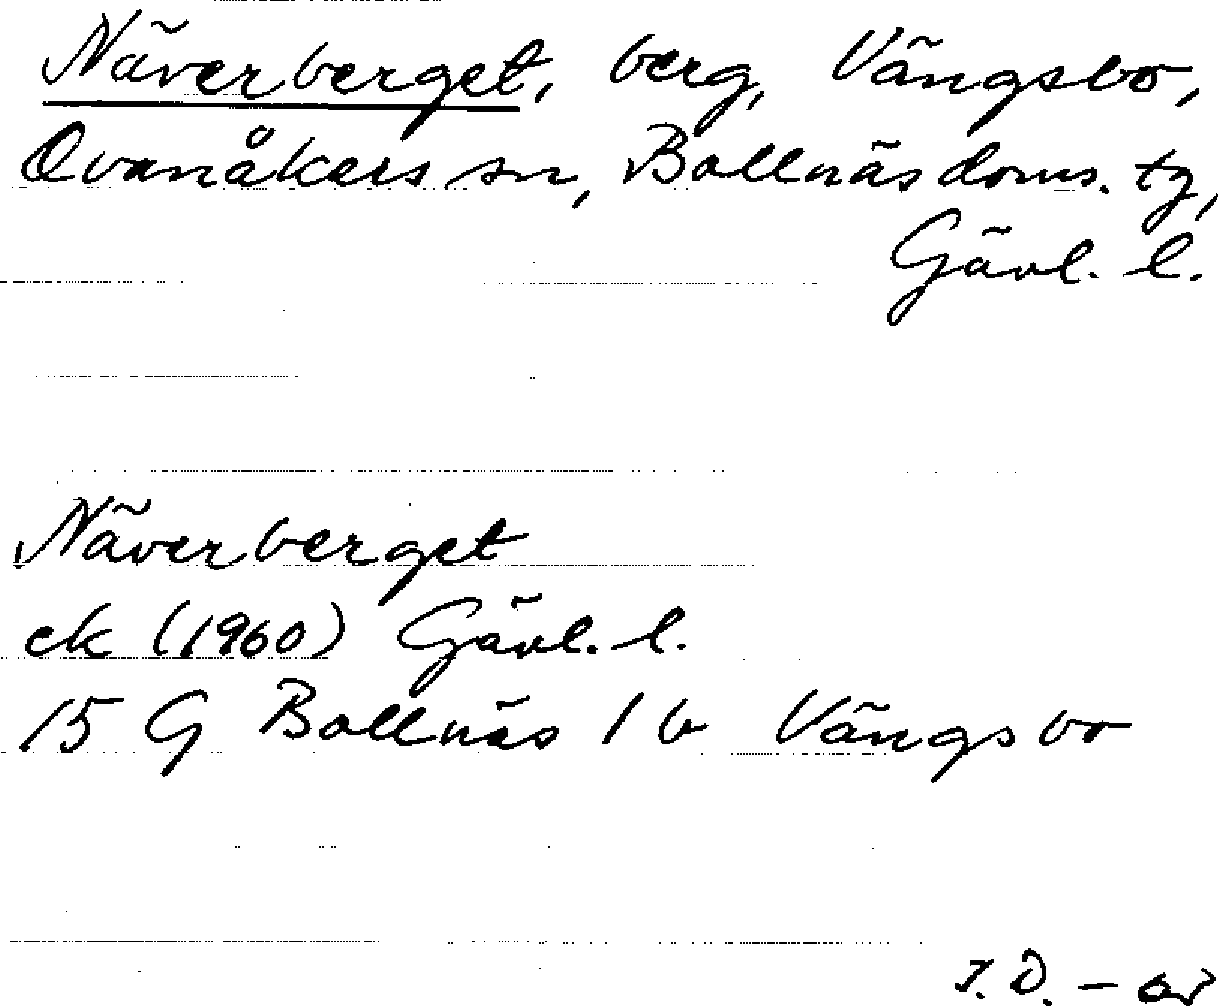 Näverberget, berg, Vängsbo,
Ovanåkers sn, Bollnäs doms. tg,
Gävl. l.
Näverberget
ek (1960) Gävl. l.
15 G Bollnäs 1 b Vängsbo
I. D. –